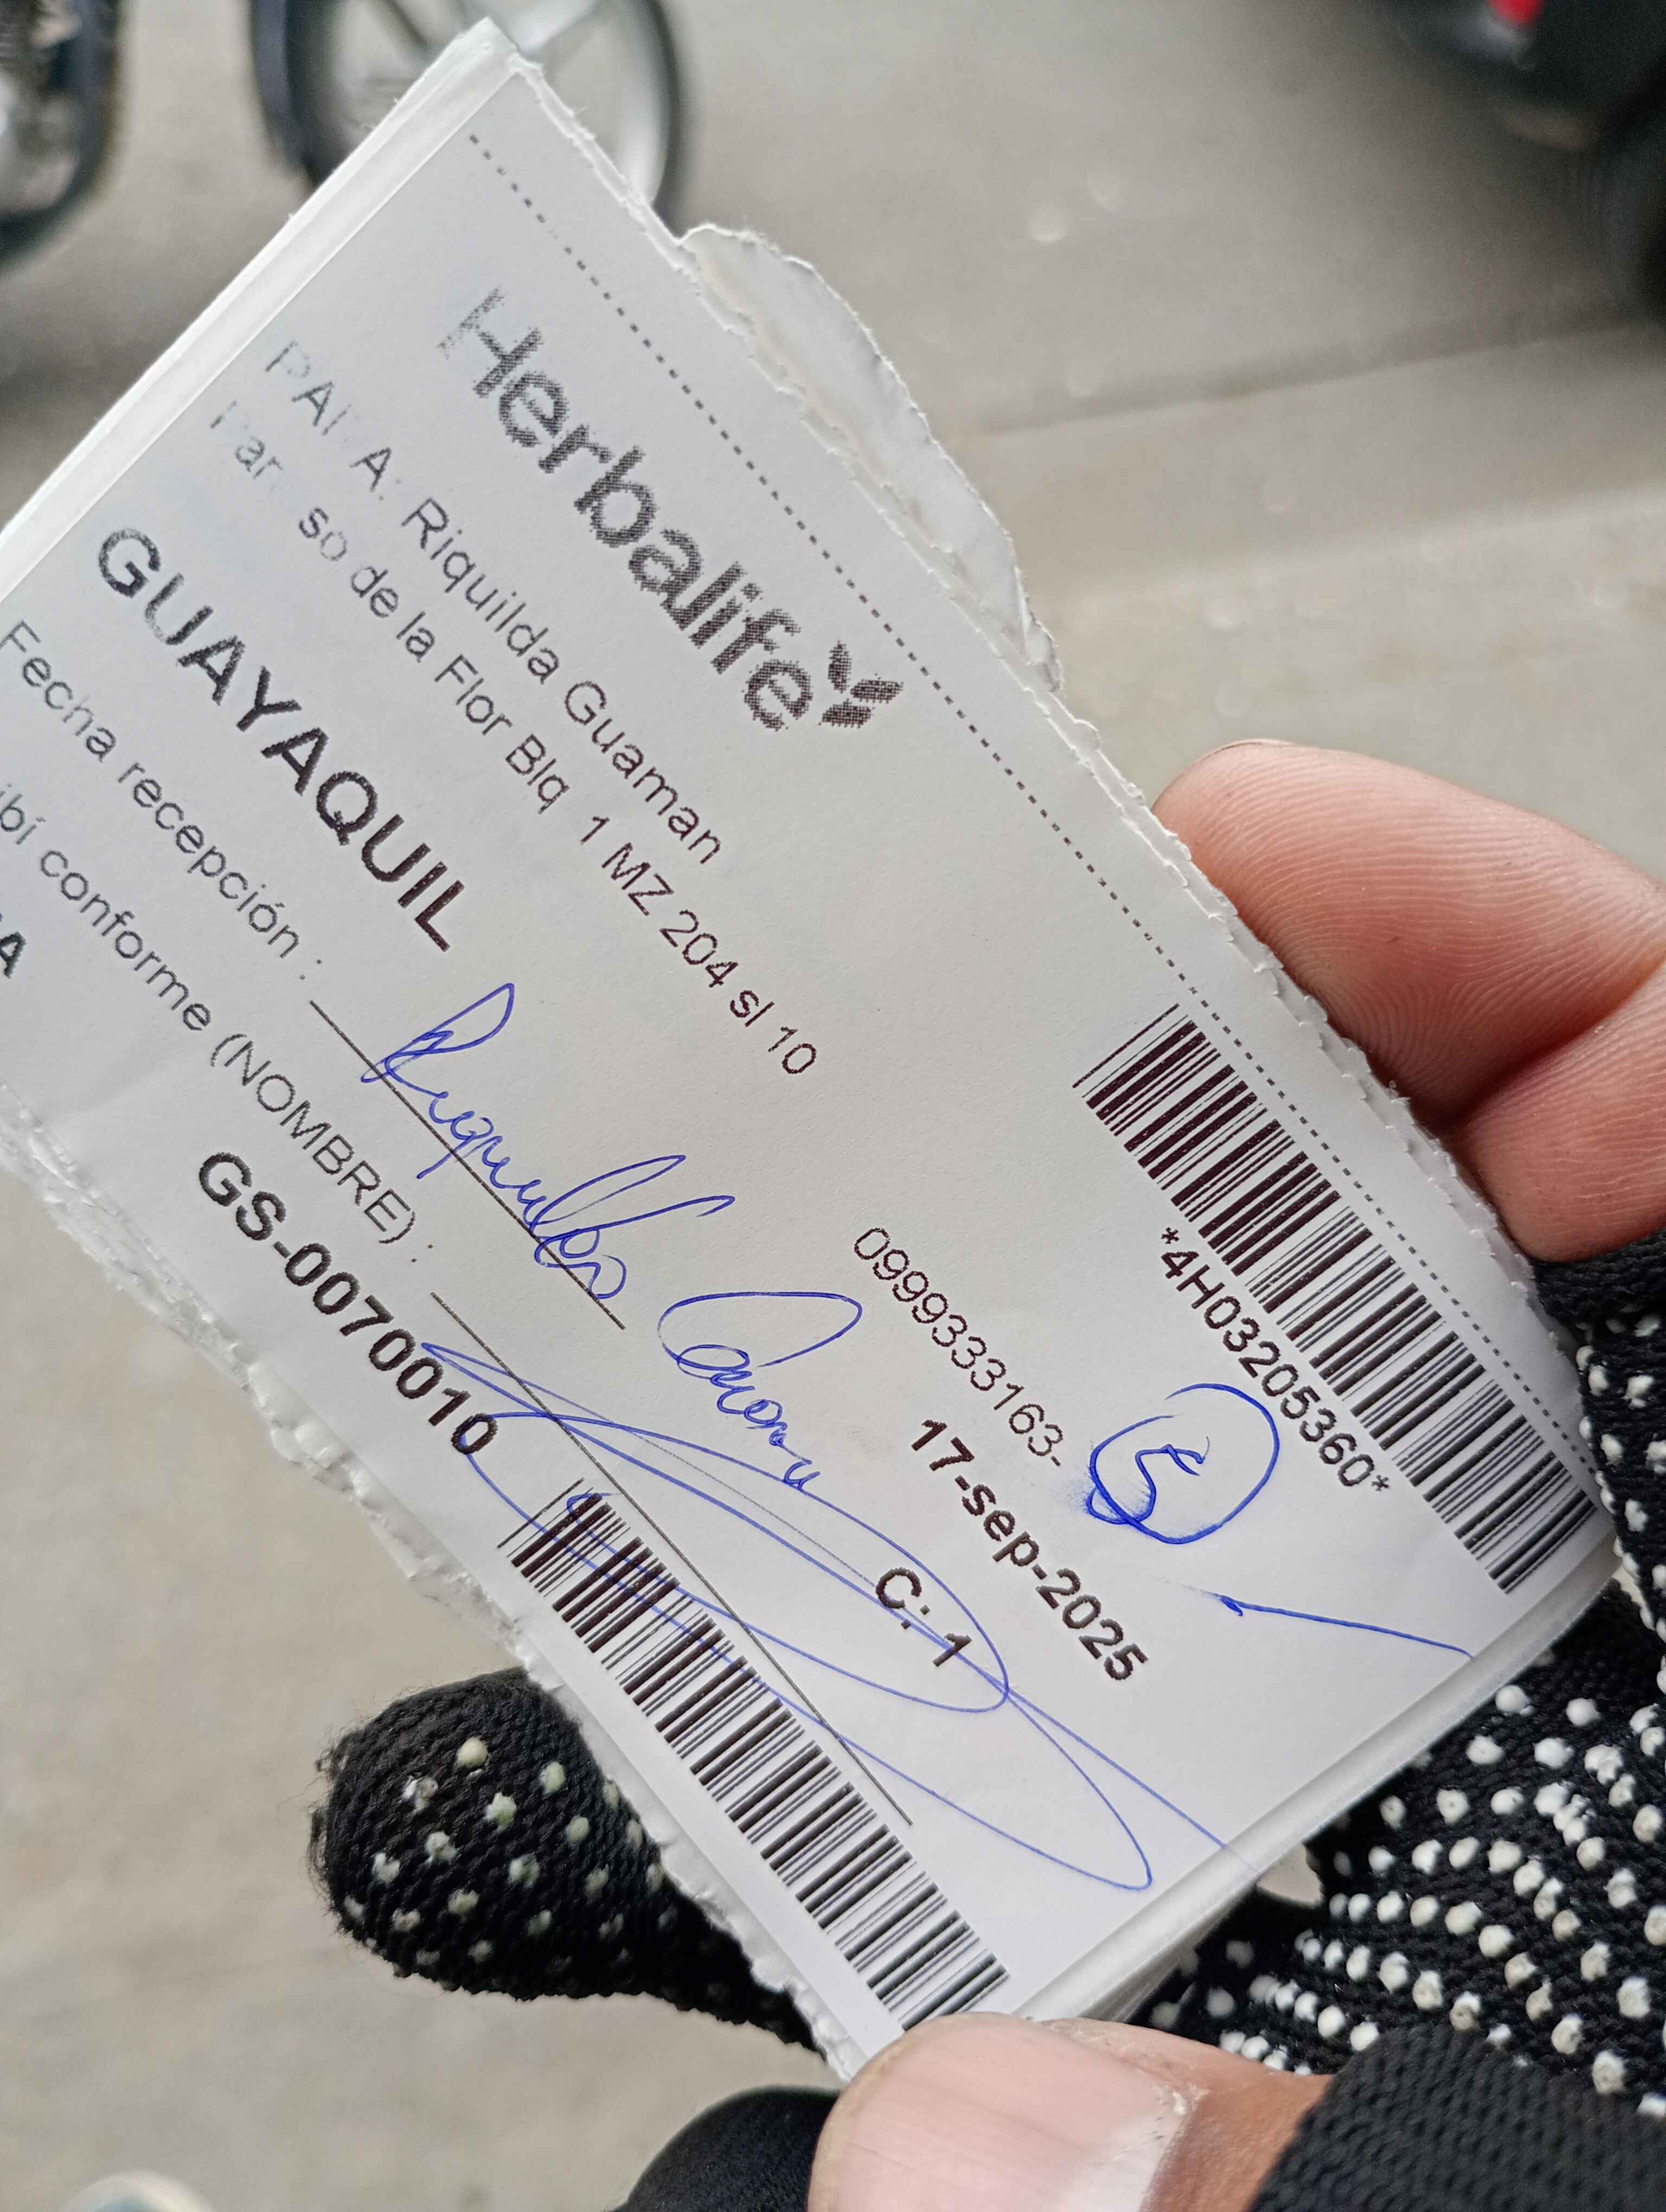 Herbalife
*4H03205360*
PARA: Riquilda Guaman
Paraiso de la Flor Blq 1 MZ 204 sl 10
0999333163-
5
GUAYAQUIL
17-sep-2025
Fecha recepción :
Riquilda
C: 1
ibí conforme (NOMBRE) :
A
GS-0070010